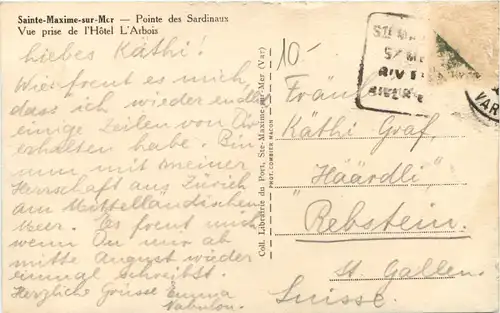 Sainte-Maxime-sur-Mer — Pointe des Sardinaux
Vue prise de l'Hôtel L'Arbois
liebes Käthi!
Wie freut es mich,
dass ich wieder
einige Zeilen von Dir
erhalten habe. Bin
nun mit meiner
Herrschaft aus Zürich
am Mittelländischen
Meer. Es freut mich
wenn Du mir ab
mitte August wieder
einmal schreibst.
Herzliche Grüsse Emma
Coll. Librairie du Port, Ste-Maxime-sur-Mer (Var)
PHOT. COMBIER MACON
10.-
Fräul
Käthi Graf,
"Häärdli"
Rebstein.
St. Gallen.
Suisse.
VAR